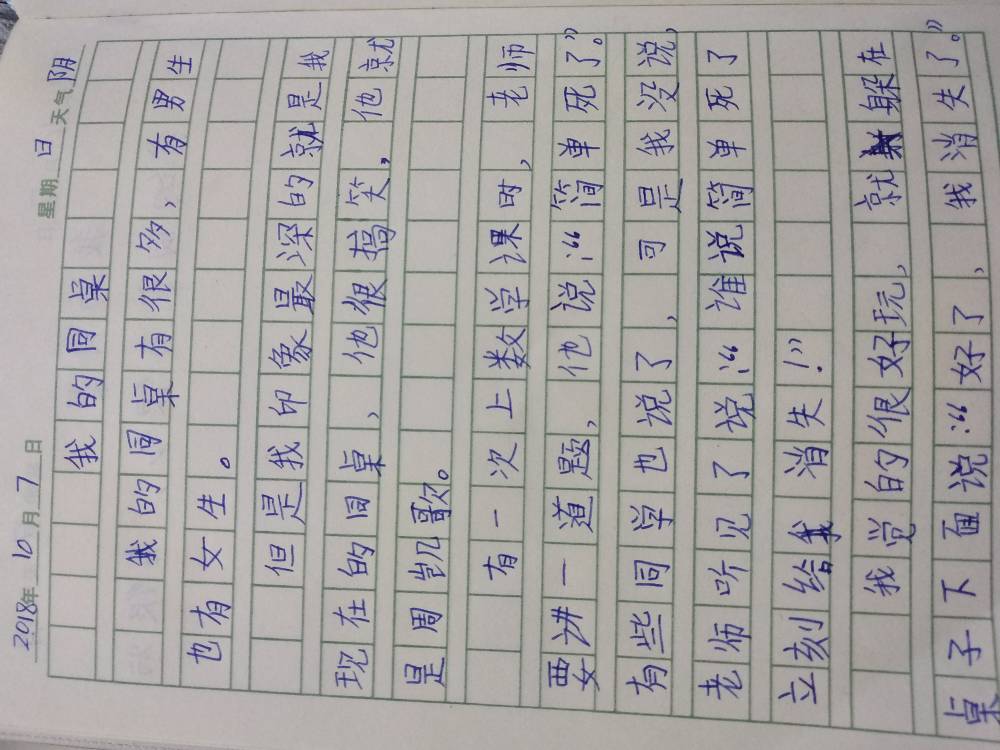 2018年10月7日 星期日 天气阴
我的同桌
我的同桌有很多，有男生
也有女生。
但是我印象最深的就是我
现在的同桌，他很搞笑，他就
是周凯歌。
有一次上数学课时，老师
要讲一道题，他说：“简单死了。”
有些同学也说了，可是我没说，
老师听见了说：“谁说简单死了
立刻给我消失！”
我觉的很好玩，就躲在
桌子下面说：“好了，我消失了。”